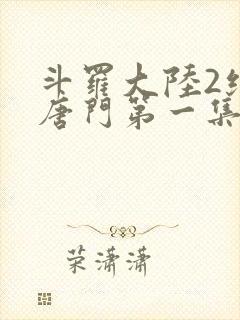 斗羅大陸2
唐門第一集
荣潇潇